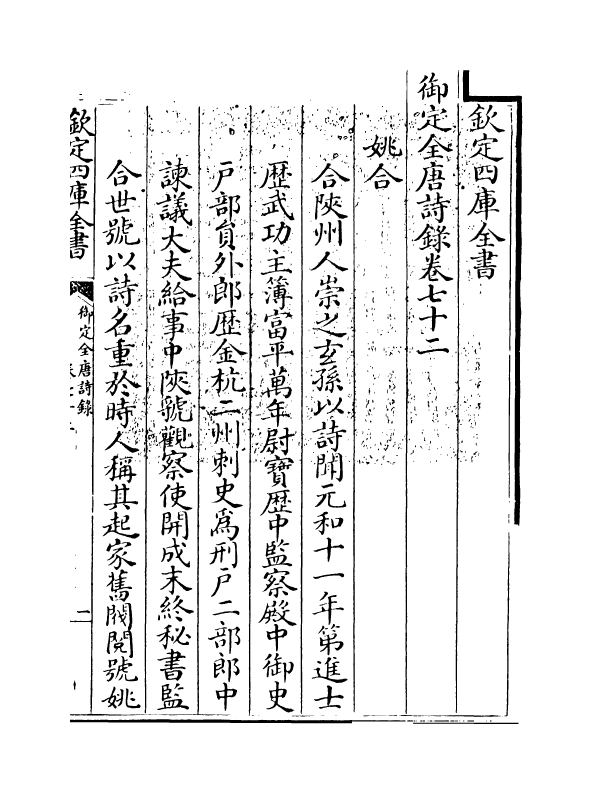 欽定四庫全書
御定全唐詩錄卷七十二
姚合
合陜州人崇之玄孫以詩聞元和十一年第進士
歴武功主簿富平萬年尉寶歴中監察殿中御史
戶部員外郎歴金杭二州刺史爲刑戶二部郎中
諫議大夫給事中陜虢觀察使開成末終秘書監
合世號以詩名重於時人稱其起家舊閥閱號姚
欽定四庫全書
御定全唐詩錄